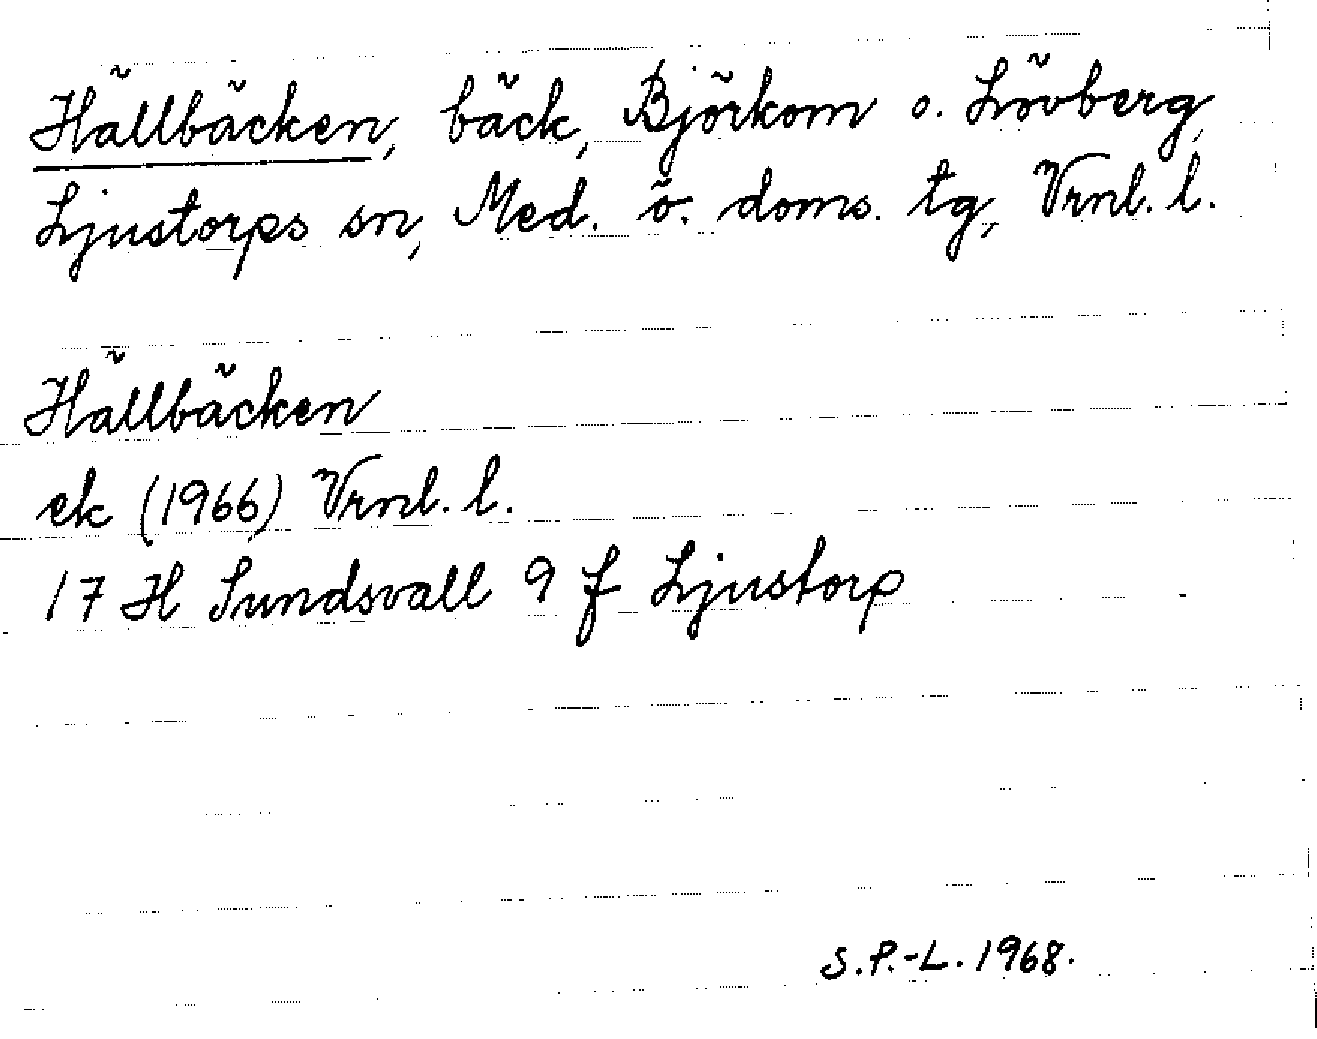 Hällbäcken, bäck, Björkom o. Lövberg,
Ljustorps sn, Med. ö. doms. tg, Vrnl. l.
Hällbäcken
ek (1966) Vrnl. l.
17 H Sundsvall 9 f Ljustorp
S.P.-L. 1968.